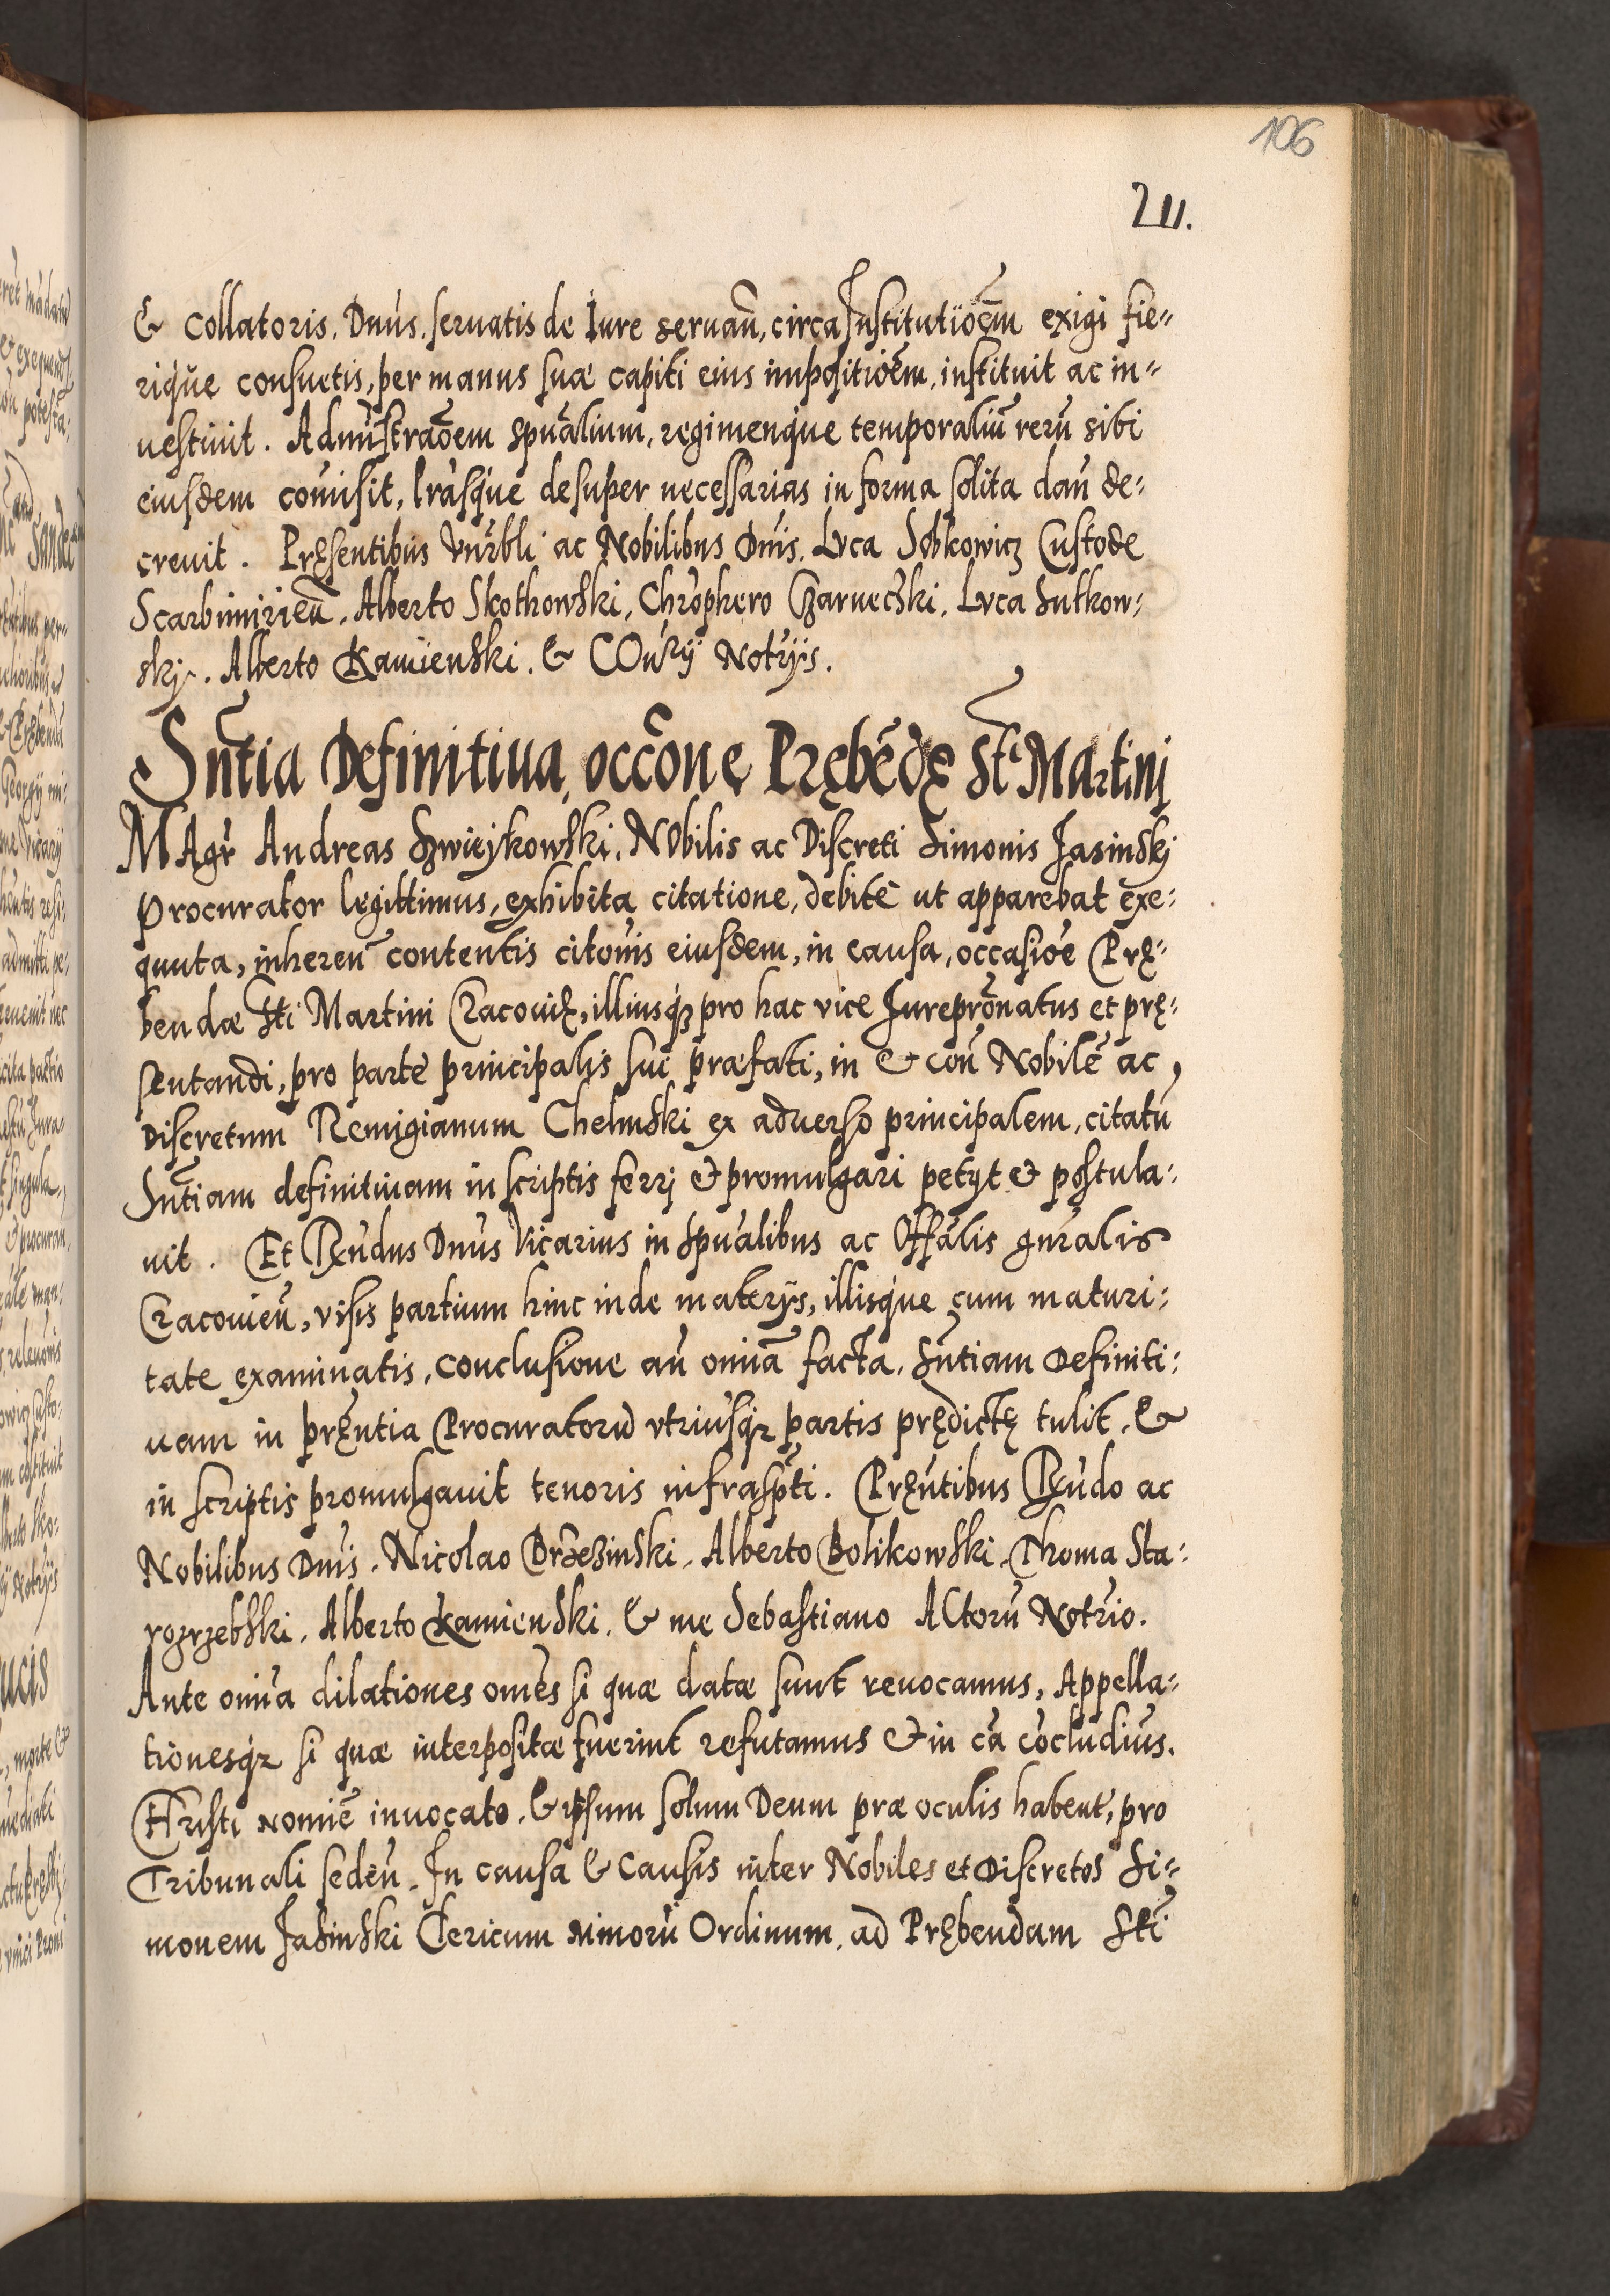 106
211.
& Collatoris. Dnus. seruatis de Iure seruan̄, circa Institutioēm exigi fie=
rique consuetis, per manus suæ capiti eius impositioēm, instituit ac in=
uestiuit. Admistraōem spuālium, regimenque temporaliū rerū sibi
eiusdem com̄isit, Lrāsque desuper necessarias in forma solita dan̄ de=
creuit. Pręsentibus Vnr̄bli ac Nobilibus Dnīs. Luca Sobkowicz Custode
Scarbimirieñ. Alberto Skothowski, Chrōphero Czarnecski, Luca Sutkow=
skj. Alberto Kamienski. & COurȳ Notr̄ijs.
Snt̄ia Definitiua, occōne Prębēdę Sti Martinj
MAgr̄ Andreas Szwieykowski. NObilis ac Discreti Simonis Jasinskj
Procurator legittimus, exhibita citatione, debite ut apparebat exe=
quuta, inheren̄ contentis citōnis eiusdem, in causa, occasiōe Prę=
bendæ Sti Martini Cracouię, illiusq; pro hac vice Iurepr̄onatus et prę=
sentandi, pro parte principalis sui præfati, in & con̄ Nobilē ac,
Discretum Remigianum Chelmski ex aduerso principalem, citatū
Snt̄iam definitiuam in scriptis ferrj & promulgari petijt & postula=
uit. Et Rn̄dus Dnūs Vicarius in Spuālibus ac Offālis gn̄ralis
Cracouien̄, visis partium hinc inde materijs, illisque cum maturi=
tate examinatis, conclusione an̄ om̄ia facta, Snt̄iam Definiti=
uam in pręn̄tia Procuratorū vtriusq; partis prędictę tulit. &
in scriptis promulgauit tenoris infrasp̄ti. Pręn̄tibus Rn̄do ac
Nobilibus Dnīs. Nicolao Brzezinski, Alberto Bolikowski. Thoma Sta=
rozrzebski, Alberto Kamienski. & me Sebastiano ACtorū Notr̄io.
Ante om̄ia dilationes om̄es si quæ datæ sunt reuocamus, Appella=
tionesq; si quæ interpositæ fuerint refutamus & in cā cōcludim̄us.
CHristi nomiē inuocato. & ipsum solum Deum præ oculis haben̄t, pro
Tribunali seden̄. In causa & causis inter Nobiles et Discretos Si=
monem Jasinski Clericum Minorū Ordinum, ad Prębendam Sti